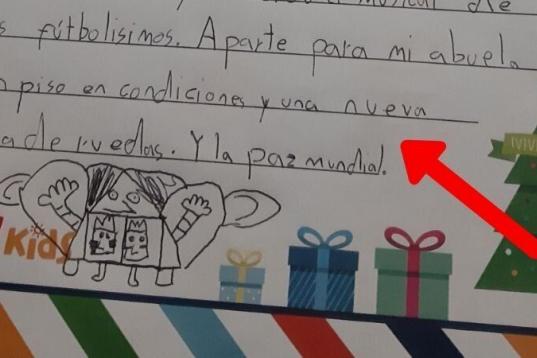 musical de
s fútbolisimos. Aparte para mi abuela
piso en condiciones y una nueva
a de ruedas. Y la paz mundial.
Kids